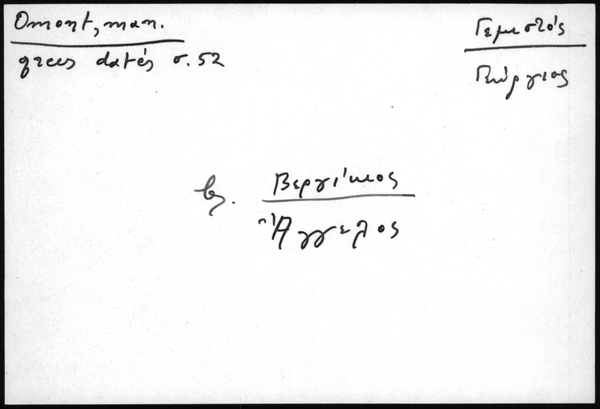 Omont, man.
grecs datés σ. 52
Γεμιστός
Γεώργιος
βλ. Βεργίκιος
Ἄγγελος